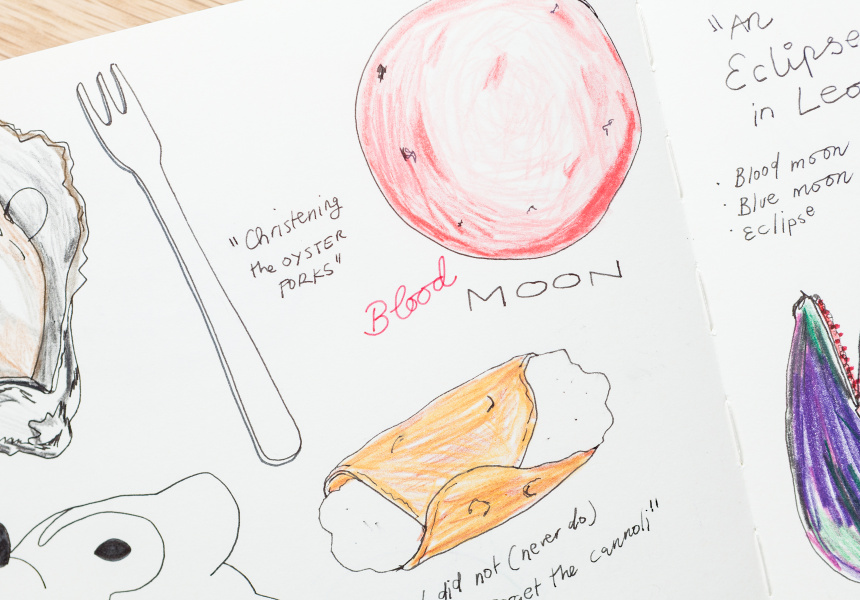 "Christening
the OYSTER
FORKS"
Blood MOON
I did not (never do)
the cannoli"
"An
Eclipse
in Leo
· Blood moon
· Blue moon
· Eclipse